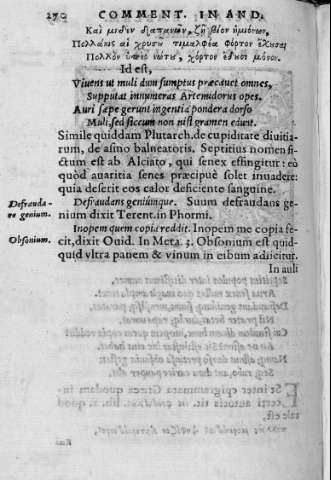 270 COMMENT. IN AND.
Καὶ μηδὲν δαπανῶν, ζῇ βίον ἡμιόνων,
Πολλάκις αἱ χρυσῦ τιμαλφέα φόρτον ἔχουσαι,
Πολλὸν ὑπὲρ νώτου, χόρτον ἔδουσι μόνον.
Id est,
Viuens ut muli dum sumptus præcauet omnes,
Supputat innumeras Artemidorus opes.
Auri sæpe gerunt ingentia pondera dorso
Muli, sed siccum non nisi gramen edunt.
Simile quiddam Plutarch. de cupiditate diuitia-
rum, de asino balneatoris. Septitius nomen fi-
ctum est ab Alciato, qui senex effingitur: eò
quòd auaritia senes præcipuè solet inuadere:
quia deserit eos calor deficiente sanguine.
Defrauda-
re genium.
Defraudans geniúmque. Suum defraudans ge-
nium dixit Terent. in Phormi.
Inopem quem copia reddit. Inopem me copia fe-
Obsonium.
cit, dixit Ouid. In Meta. 3. Obsonium est quid-
quid vltra panem & vinum in cibum adijcitur.
In auli